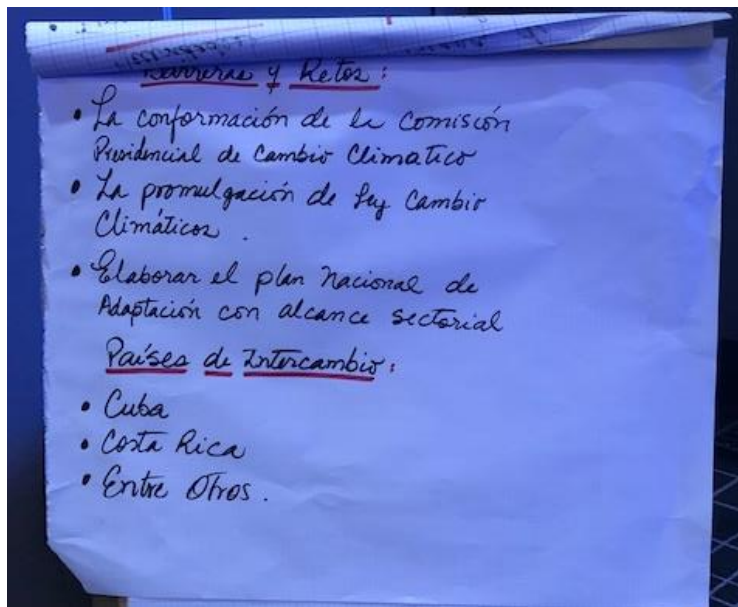 Barreras y Retos:
• La conformación de la Comisión
Presidencial de Cambio Climatico
• La promulgación de Ley Cambio
Climáticos.
• Elaborar el plan Nacional de
Adaptación con alcance sectorial
Países de Intercambio:
• Cuba
• Costa Rica
• Entre Otros.